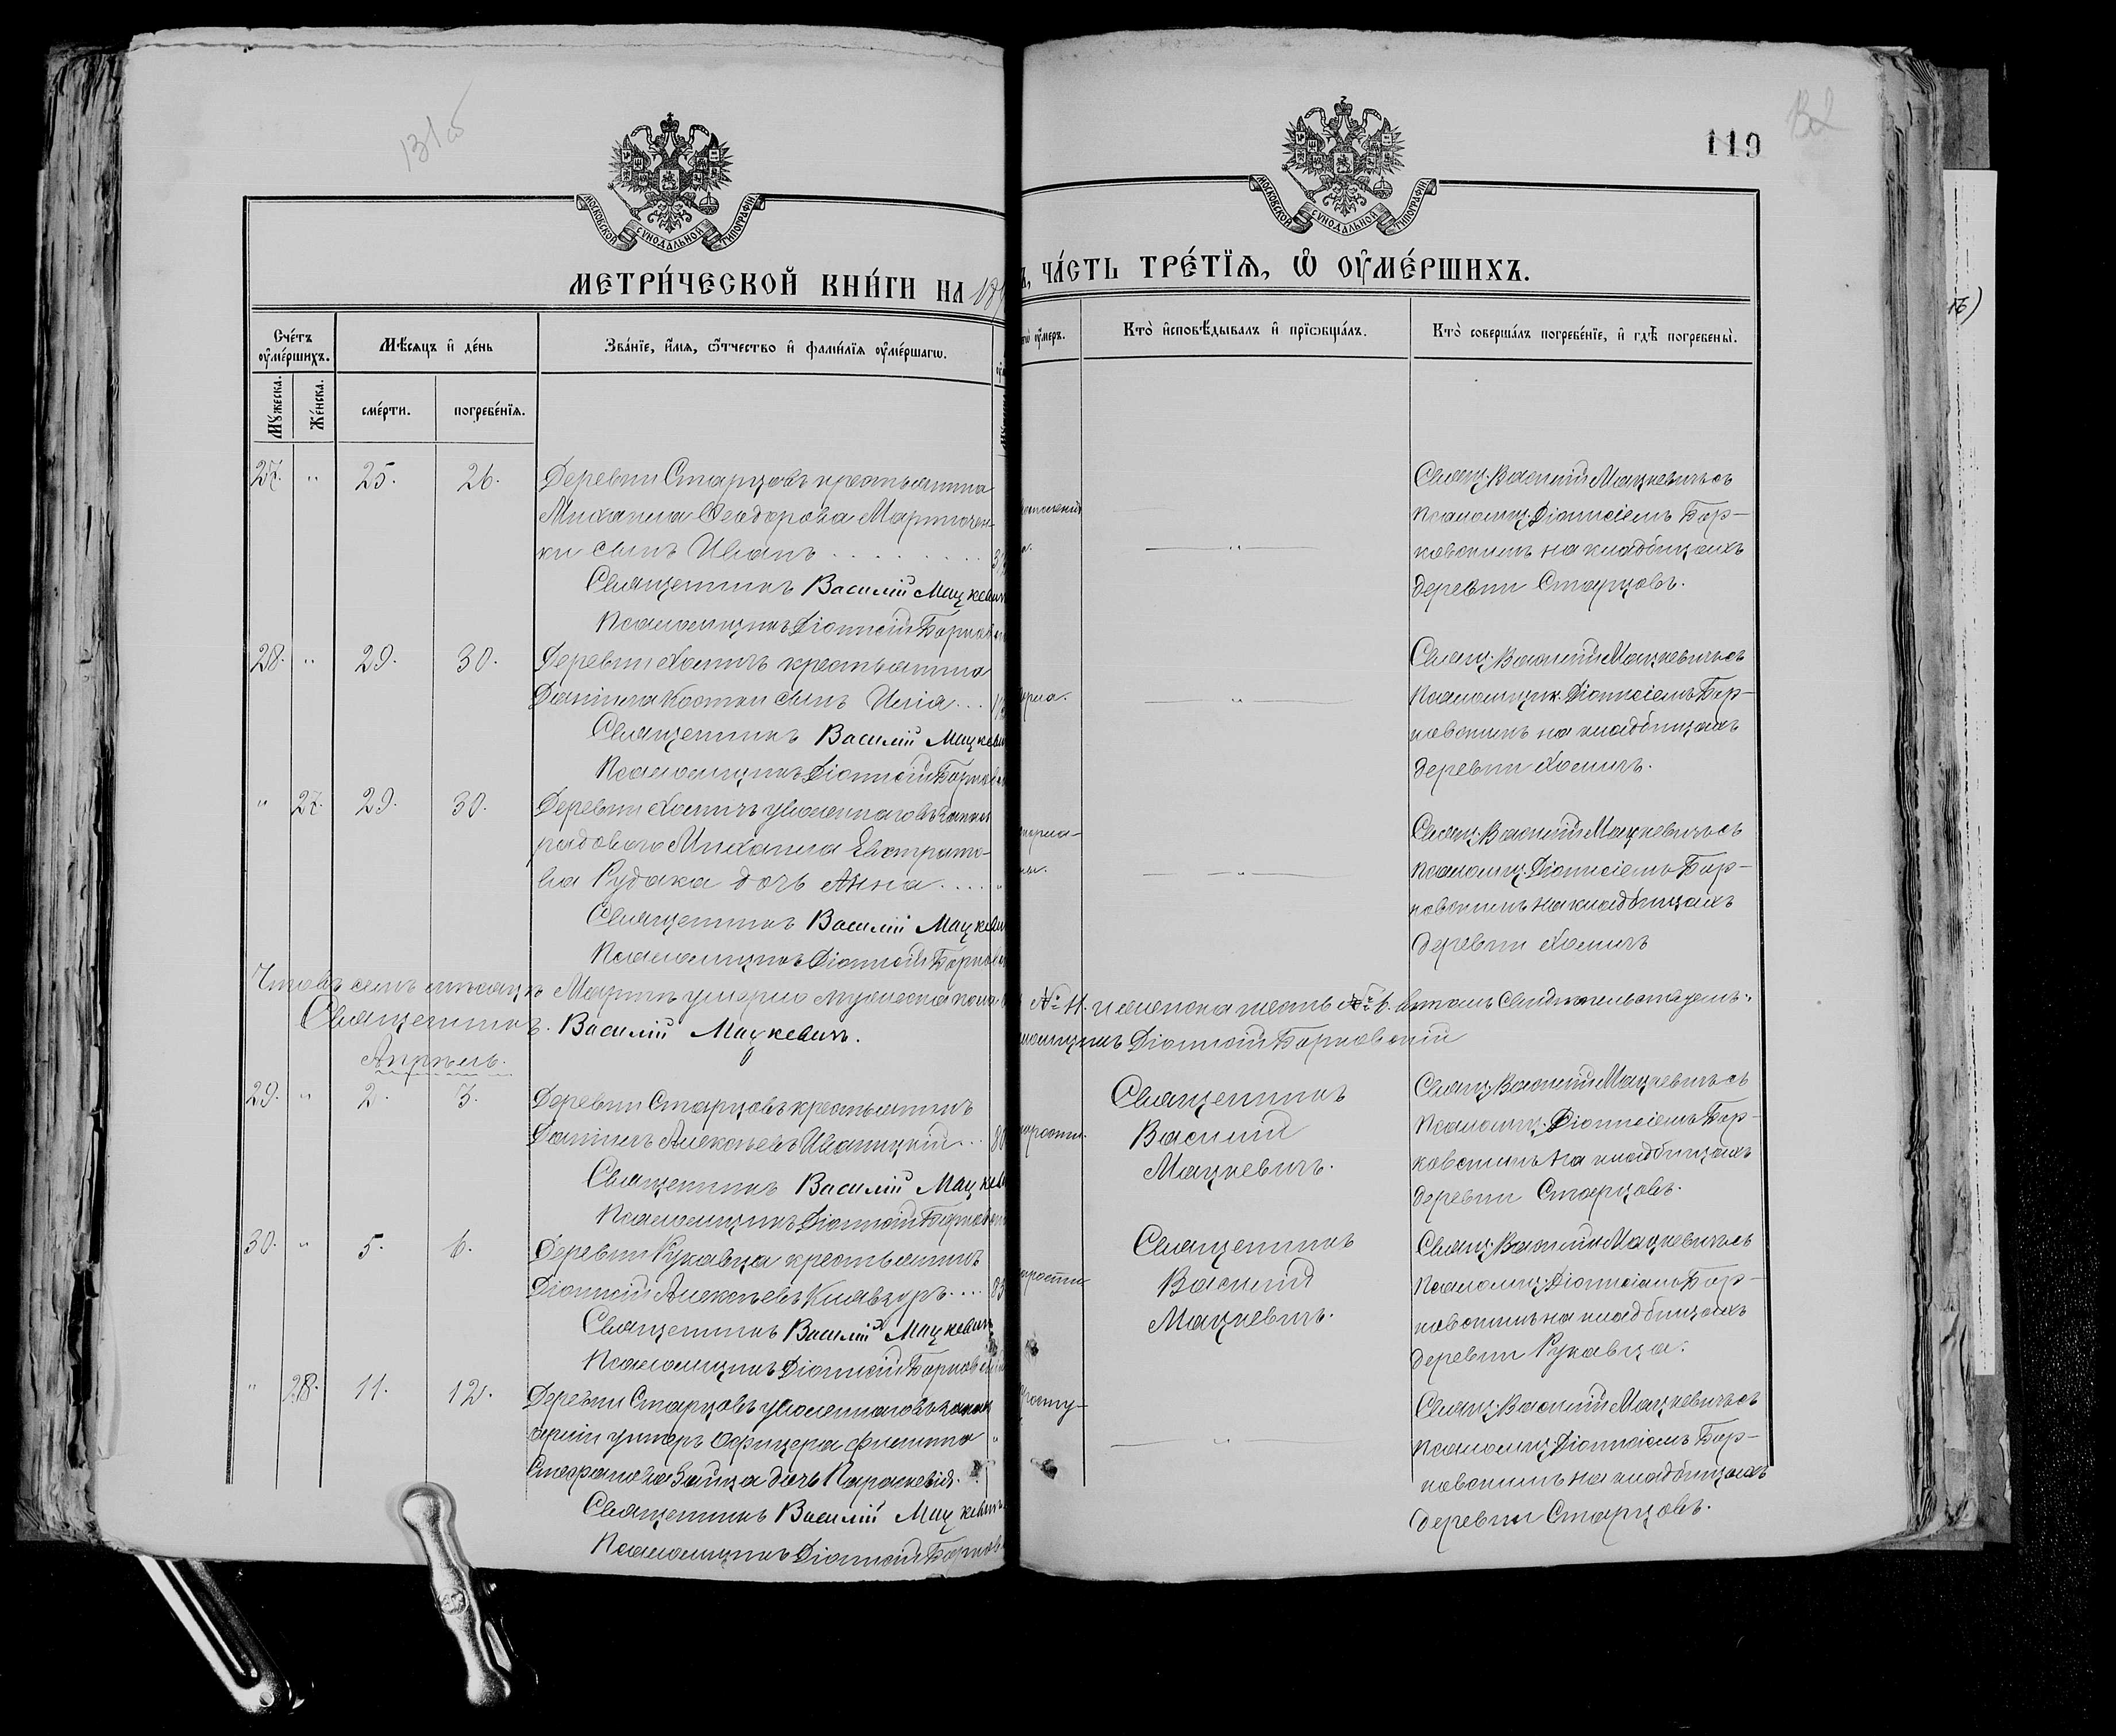 131об
132
119
МОСКОВСКОЙ СѴНОДАЛЬНОЙ ТИПОГРАФІИ
МОСКОВСКОЙ СѴНОДАЛЬНОЙ ТИПОГРАФІИ
МЕТРИ́ЧЕСКОЙ КНИ́ГИ НА 189
Ъ, ЧА́СТЬ ТРЕ́ТЇѦ, Ѡ҆ ОУ҆МЕ́РШИХЪ.
Сче́тъ оу҆ме́ршихъ.
Мѣ́сяцъ и҆ де́нь
Зва́нїе, и҆́мя, ѻ҆́тчество и҆ фами́лїя оу҆ме́ршагѡ.
оу҆́меръ.
Кто̀ и҆сповѣ́дывалъ и҆ прїѡбща́лъ.
Кто̀ соверша́лъ погребе́нїе, и҆ гдѣ̀ погребены̀.
Мꙋ́жеска.
Же́нска.
сме́рти.
погребе́нїя.
27. " 25. 26. Деревни Старцовъ крестьянина
Михаила Ѳеодорова Мартинен-
ки сынъ Иванъ
Священникъ Василій Мацкевич
Псаломщикъ Діонисій Борков
Свящ. Василій Мацкевичъ съ
псаломщ. Діонисіемъ Бор-
ковскимъ на кладбищахъ
деревни Старцовъ.
28. " 29. 30. Деревни Хоничъ крестьянина
Даніила Костки сынъ Илія
Священникъ Василій Мацкеви
Псаломщикъ Діонисій Борков
Свящ. Василій Мацкевичъ съ
псаломщик. Діонисіемъ Бор-
ковскимъ на кладбищахъ
деревни Хоничъ.
" 27. 29. 30. Деревни Хоничъ уволеннаго въ запас
рядового Михаила Евстрато-
ва Рудака дочь Анна
Священникъ Василій Мацкеви
Псаломщикъ Діонисій Борков
Свящ. Василій Мацкевичъ съ
псаломщ. Діонисіемъ Бор-
ковскимъ на кладбищахъ
деревни Хоничъ
Что въ семъ мѣсяцѣ Мартѣ умерло мужеска пола № 11. и женска шесть № 6. въ томъ свидѣтельствуемъ:
Священникъ Василій Мацкевичъ. Діонисій Борковскій
Апрѣль.
29. " 2. 3. Деревни Старцовъ крестьянинъ
Даніилъ Алексѣевъ Иваницкій 80
Священникъ Василій Мацкев
Псаломщикъ Діонисій Борков
Священникъ
Василій
Мацкевичъ.
Свящ. Василій Мацкевичъ съ
псаломщ. Діонисіемъ Бор-
ковскимъ на кладбищахъ
деревни Старцовъ.
30. " 5. 6. Деревни Рукавца крестьянинъ
Діонисій Алексѣевъ 83
Священникъ Василій Мацкевич
Псаломщикъ Діонисій Борков
Священникъ
Василій
Мацкевичъ.
Свящ. Василій Мацкевичъ съ
псаломщ. Діонисіемъ Бор-
ковскимъ на кладбищахъ
деревни Рукавца.
" 28. 11. 12. Деревни Старцовъ уволеннаго въ запас
арміи унтеръ Офицера Филиппа
Стефанова Зайца дочь Параскевія.
Священникъ Василій Мацкевич
Псаломщикъ Діонисій Борков
Свящ. Василій Мацкевичъ съ
псаломщ. Діонисіемъ Бор-
ковскимъ на кладбищахъ
деревни Старцовъ.